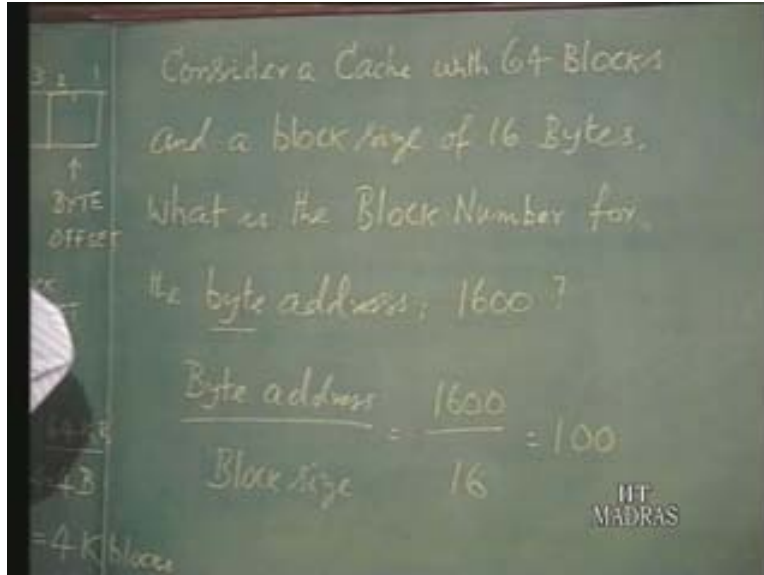 3 2 1
BYTE
OFFSET
= 4K blocks
Consider a Cache with 64 Blocks
and a block size of 16 Bytes.
What is the Block Number for
the byte address: 1600 ?
Byte address
Block size
= 1600
16
= 100
IIT
MADRAS